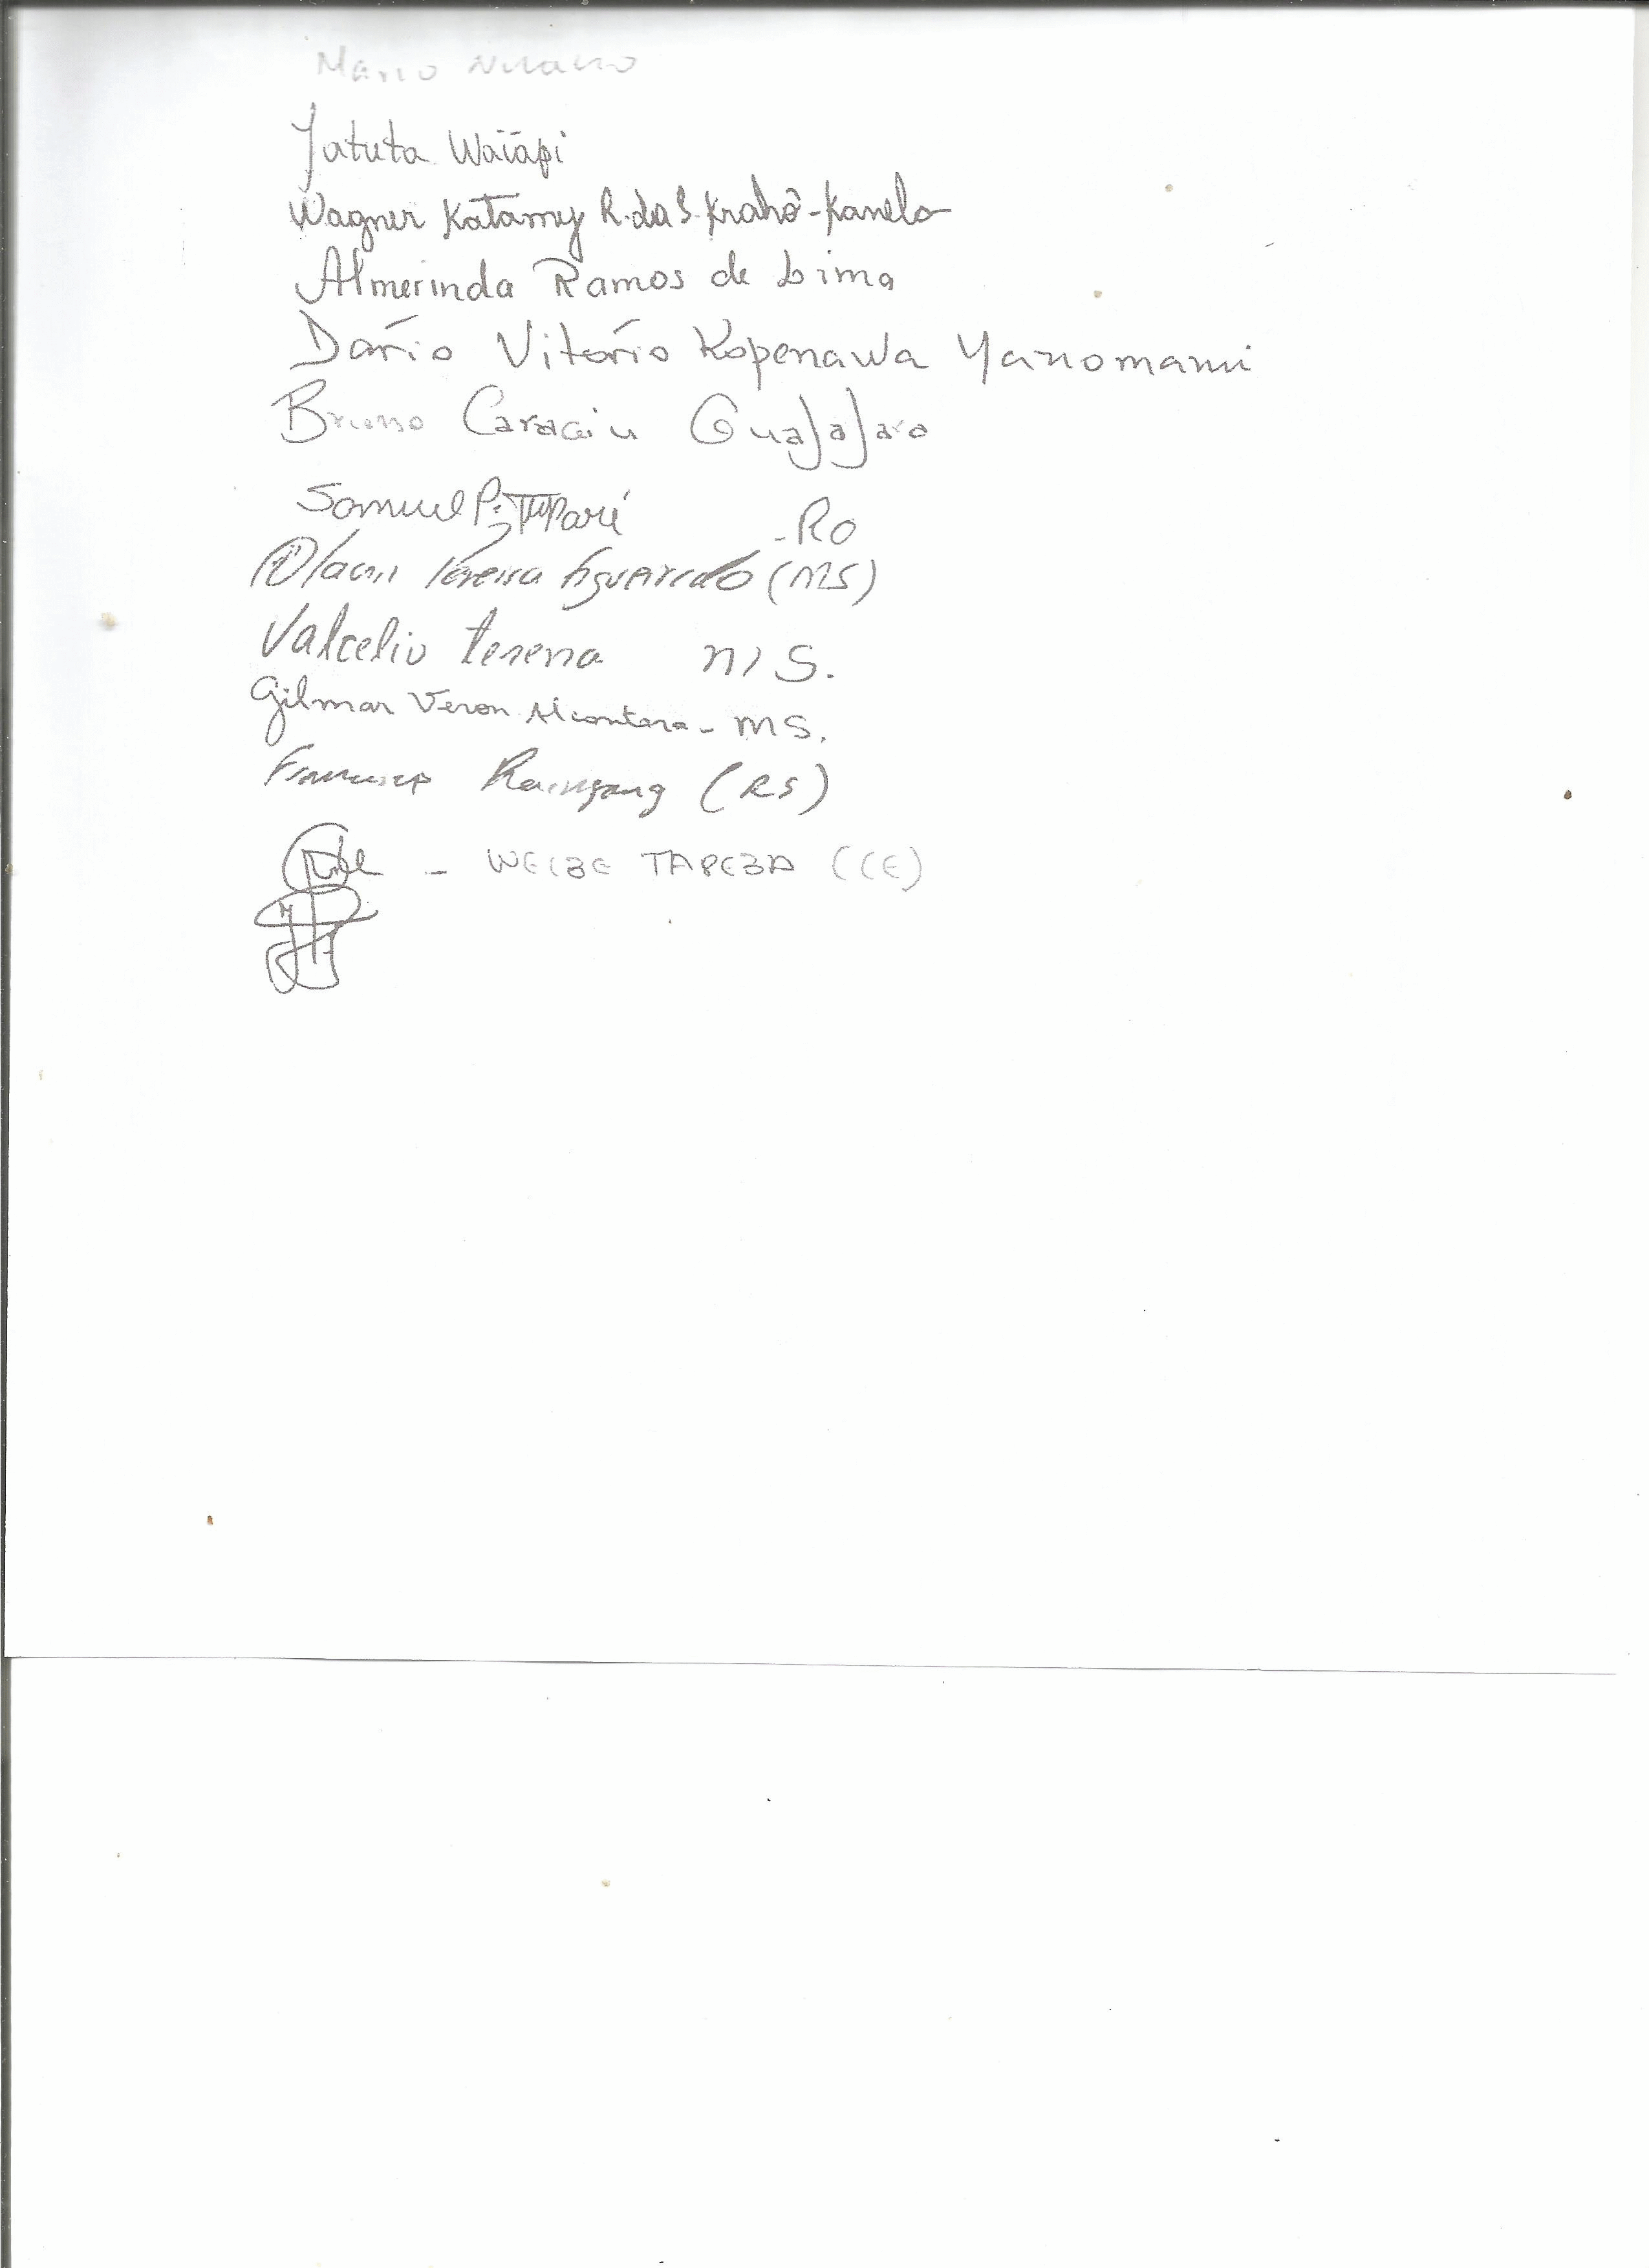 Mario
Jatuta Waiãpi
Wagner Katamy R. da S. Krahô-Kanela
Almerinda Ramos de Lima
Dário Vitório Kopenawa Yanomami
Bruno Caraciu Guajajara
Samuel P. Tupari - RO
Pereira Figueiredo (MS)
Valcelio terena MS.
Gilmar Veron Alcantara - MS.
Kaingang (RS)
- WEIBE TAPEBA (CE)